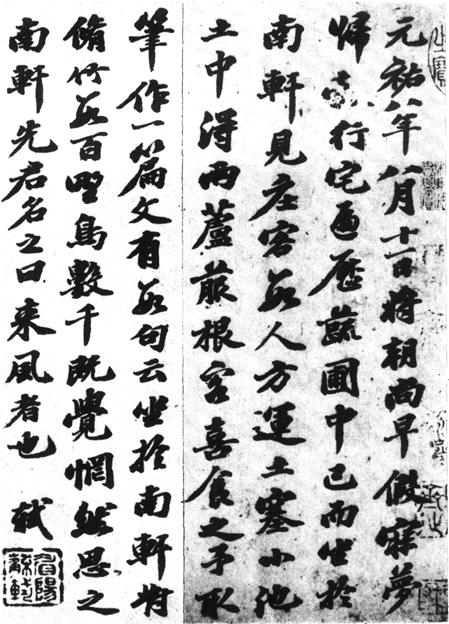 元祐八年八月十一日將朝尚早假寐夢
歸縠行宅遍歷蔬圃中已而坐於
南軒見莊客數人方運土塞小池
土中得兩蘆菔根客喜食之予取
筆作一篇文有數句云坐於南軒對
脩竹數百野鳥數千既覺惘然思之
南軒先君名之曰來風者也 軾
眉陽蘇軾